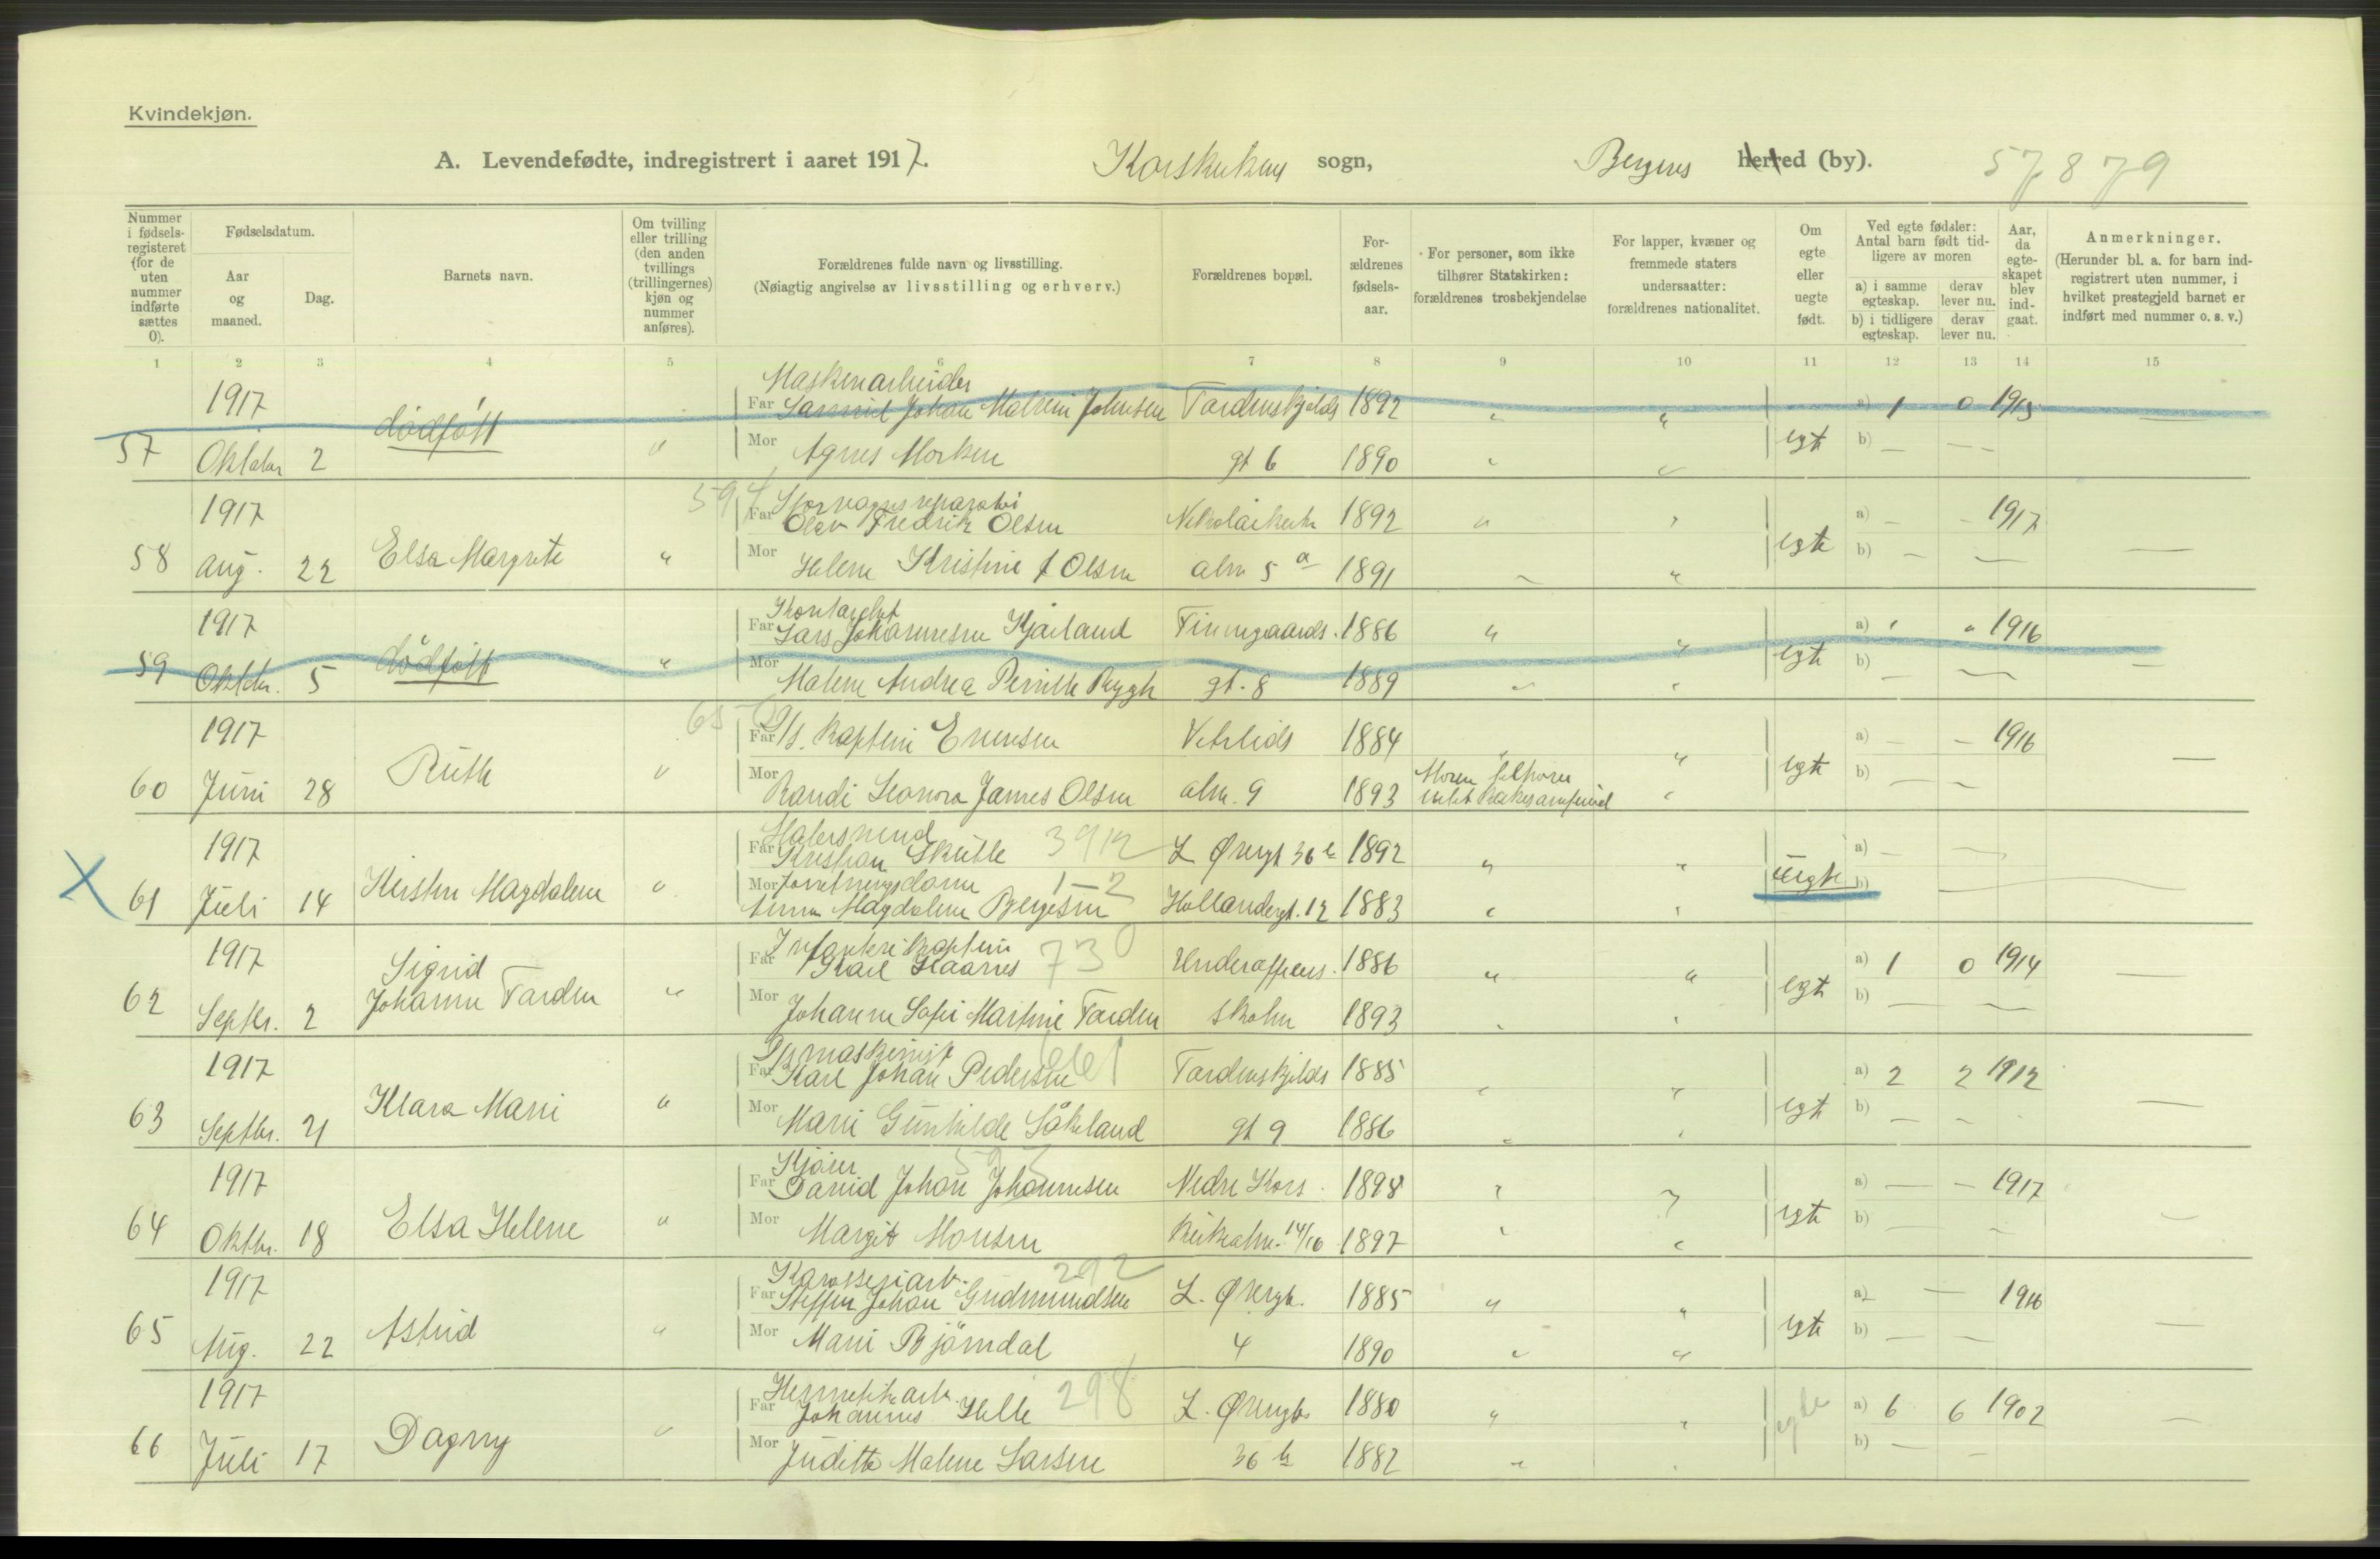 Kvindekjøn.
A. Levendefødte, indregistrert i aaret 1917. Korskirken sogn, Bergens herred (by). 57879
Nummer i fødselsregisteret (for de uten nummer indførte sættes 0).
Fødselsdatum.
Aar og maaned.
Dag.
Barnets navn.
Om tvilling eller trilling (den anden tvillings (trillingernes) kjøn og nummer anføres).
Forældrenes fulde navn og livsstilling.
(Nøiagtig angivelse av livsstilling og erhverv.)
Forældrenes bopæl.
Forældrenes fødselsaar.
For personer, som ikke tilhører Statskirken: forældrenes trosbekjendelse
For lapper, kvæner og fremmede staters undersaatter: forældrenes nationalitet.
Om egte eller uegte født.
Ved egte fødsler: Antal barn født tidligere av moren
a) i samme egteskap. derav lever nu.
b) i tidligere egteskap. derav lever nu.
Aar, da egteskapet blev indgaat.
Anmerkninger.
(Herunder bl. a. for barn indregistrert uten nummer, i hvilket prestegjeld barnet er indført med nummer o. s. v.)
1 2 3 4 5 6 7 8 9 10 11 12 13 14 15
Maskinarbeider
1917 Far Johan Johnsen Tordenskjolds 1892 a) 1 0 1915
57 Oktober 2 dödfött Mor Agnes Morken gt 6 1890 egte b)
594
Sporvognsreparatør
1917 Far Olav Fredrik Olsen Nikolaikirke 1892 a) 1917
58 Aug. 22 Elsa Margrete Mor Helene Kristine f Olsen alm 5 a 1891 egte b)
Kontorchef
1917 Far Lars Johannesen Finnegaards. 1886 a) 1916
59 Oktbr. 5 dödfött Mor Malene Andrea Pernille Rygh gt. 8 1889 egte b)
1917 Far D/s. kaptein Evensen Vetrlids 1884 a) 1916
60 Juni 28 Ruth Mor Randi Leonora James Olsen alm. 9 1893 Moren tilhører intet egte b)
Malersvend 3912
1917 Far Kristian Skutle L. Øvregt 36 b 1892 a)
Mor Forretningsdame 1-2
X 61 Juli 14 Kirsten Magdalene Anna Magdalene Bergesen Hollendergt. 12 1883 uegte b)
Infanterikaptein 730
1917 Far Karl Haarnes Underofficers. 1886 a) 1 0 1914
62 Septbr. 2 Sigrid Johanne Torden Mor Johanne Sofie Martine Torden skolen 1893 egte b)
D/smaskinist 661
1917 Far Karl Johan Pedersen Tordenskjolds 1885 a) 2 2 1912
63 Septbr. 21 Klara Marie Mor Marie Gunhilde Såkeland gt 9 1886 egte b)
Kjører
1917 Far David Johan Johannesen Nedre Kors 1898 a) 1917
64 Oktbr. 18 Elsa Helene Mor Margit Monsen kirkealm. 14/16 1897 egte b)
Karosseriarb. 292
1917 Far Steffen Johan Gudmundsen L. Øvregt. 1885 a) 1916
65 Aug. 22 Astrid Mor Marie Bjørndal 4 1890 egte b)
Hermetikarb. 298
1917 Far Johannes Helle L. Øvregt. 1880 a) 6 6 1902
66 Juli 17 Dagny Mor Juditte Malene Larsen 36 b 1882 egte b)